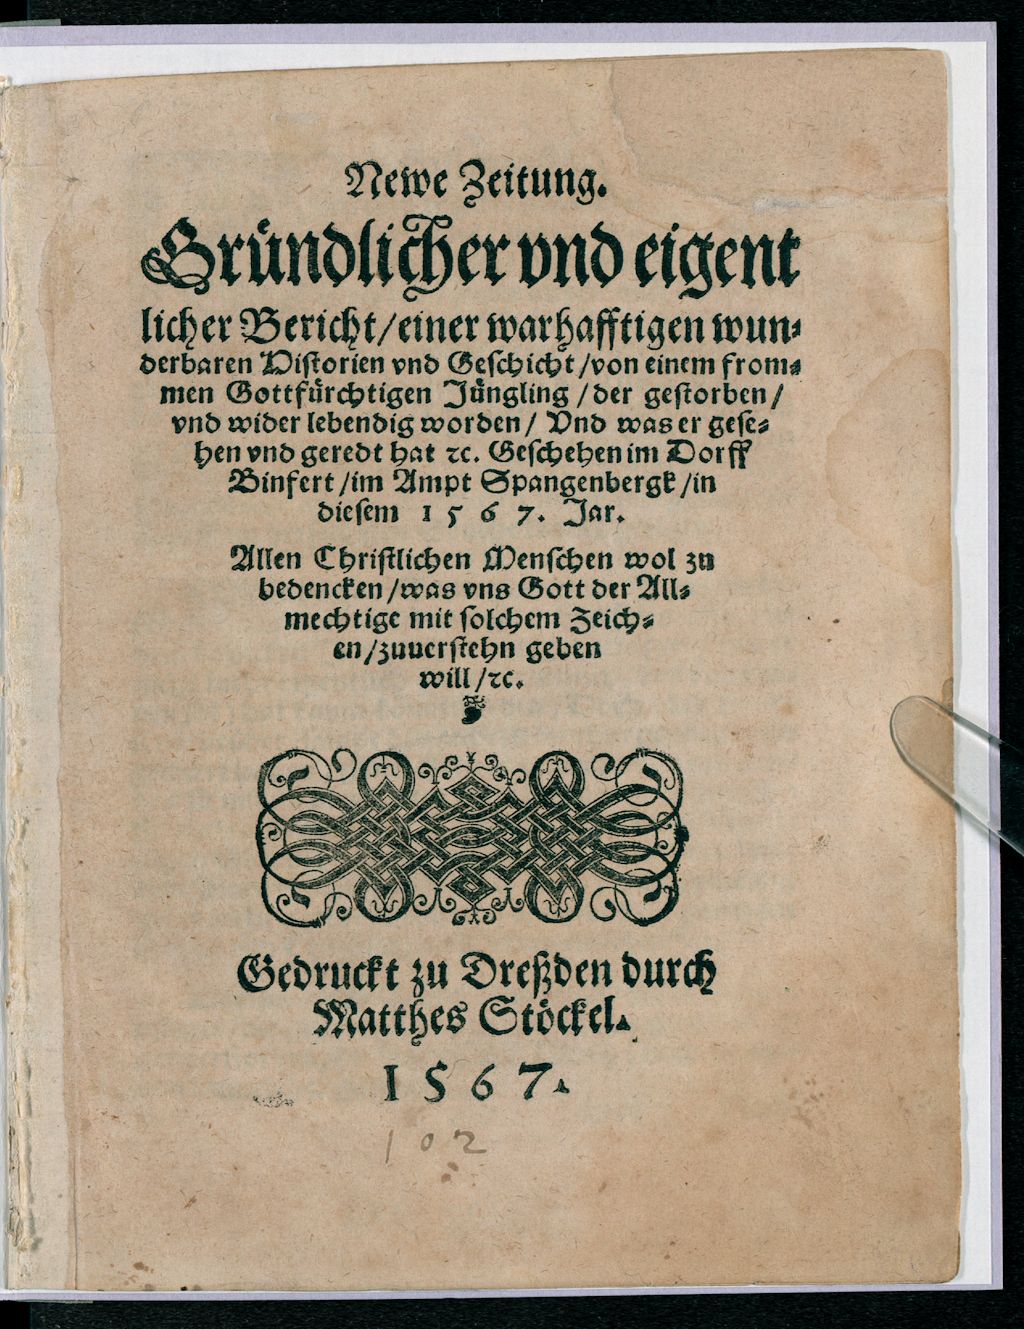 Newe Zeitung.
Gründlicher vnd eigent
licher Bericht/einer warhafftigen wun⸗
derbaren Historien vnd Geschicht/von einem from⸗
men Gottfürchtigen Jüngling/der gestorben/
vnd wider lebendig worden/ Vnd was er gese⸗
hen vnd geredt hat ꝛc. Geschehen im Dorff
Binfert/im Ampt Spangenbergk/in
diesem 1567. Jar.
Allen Christlichen Menschen wol zu
bedencken/was vns Gott der All⸗
mechtige mit solchem Zeich⸗
en/zuuerstehn geben
will/ꝛc.
Gedruckt zu Dreßden durch
Matthes Stöckel.
1567.
102